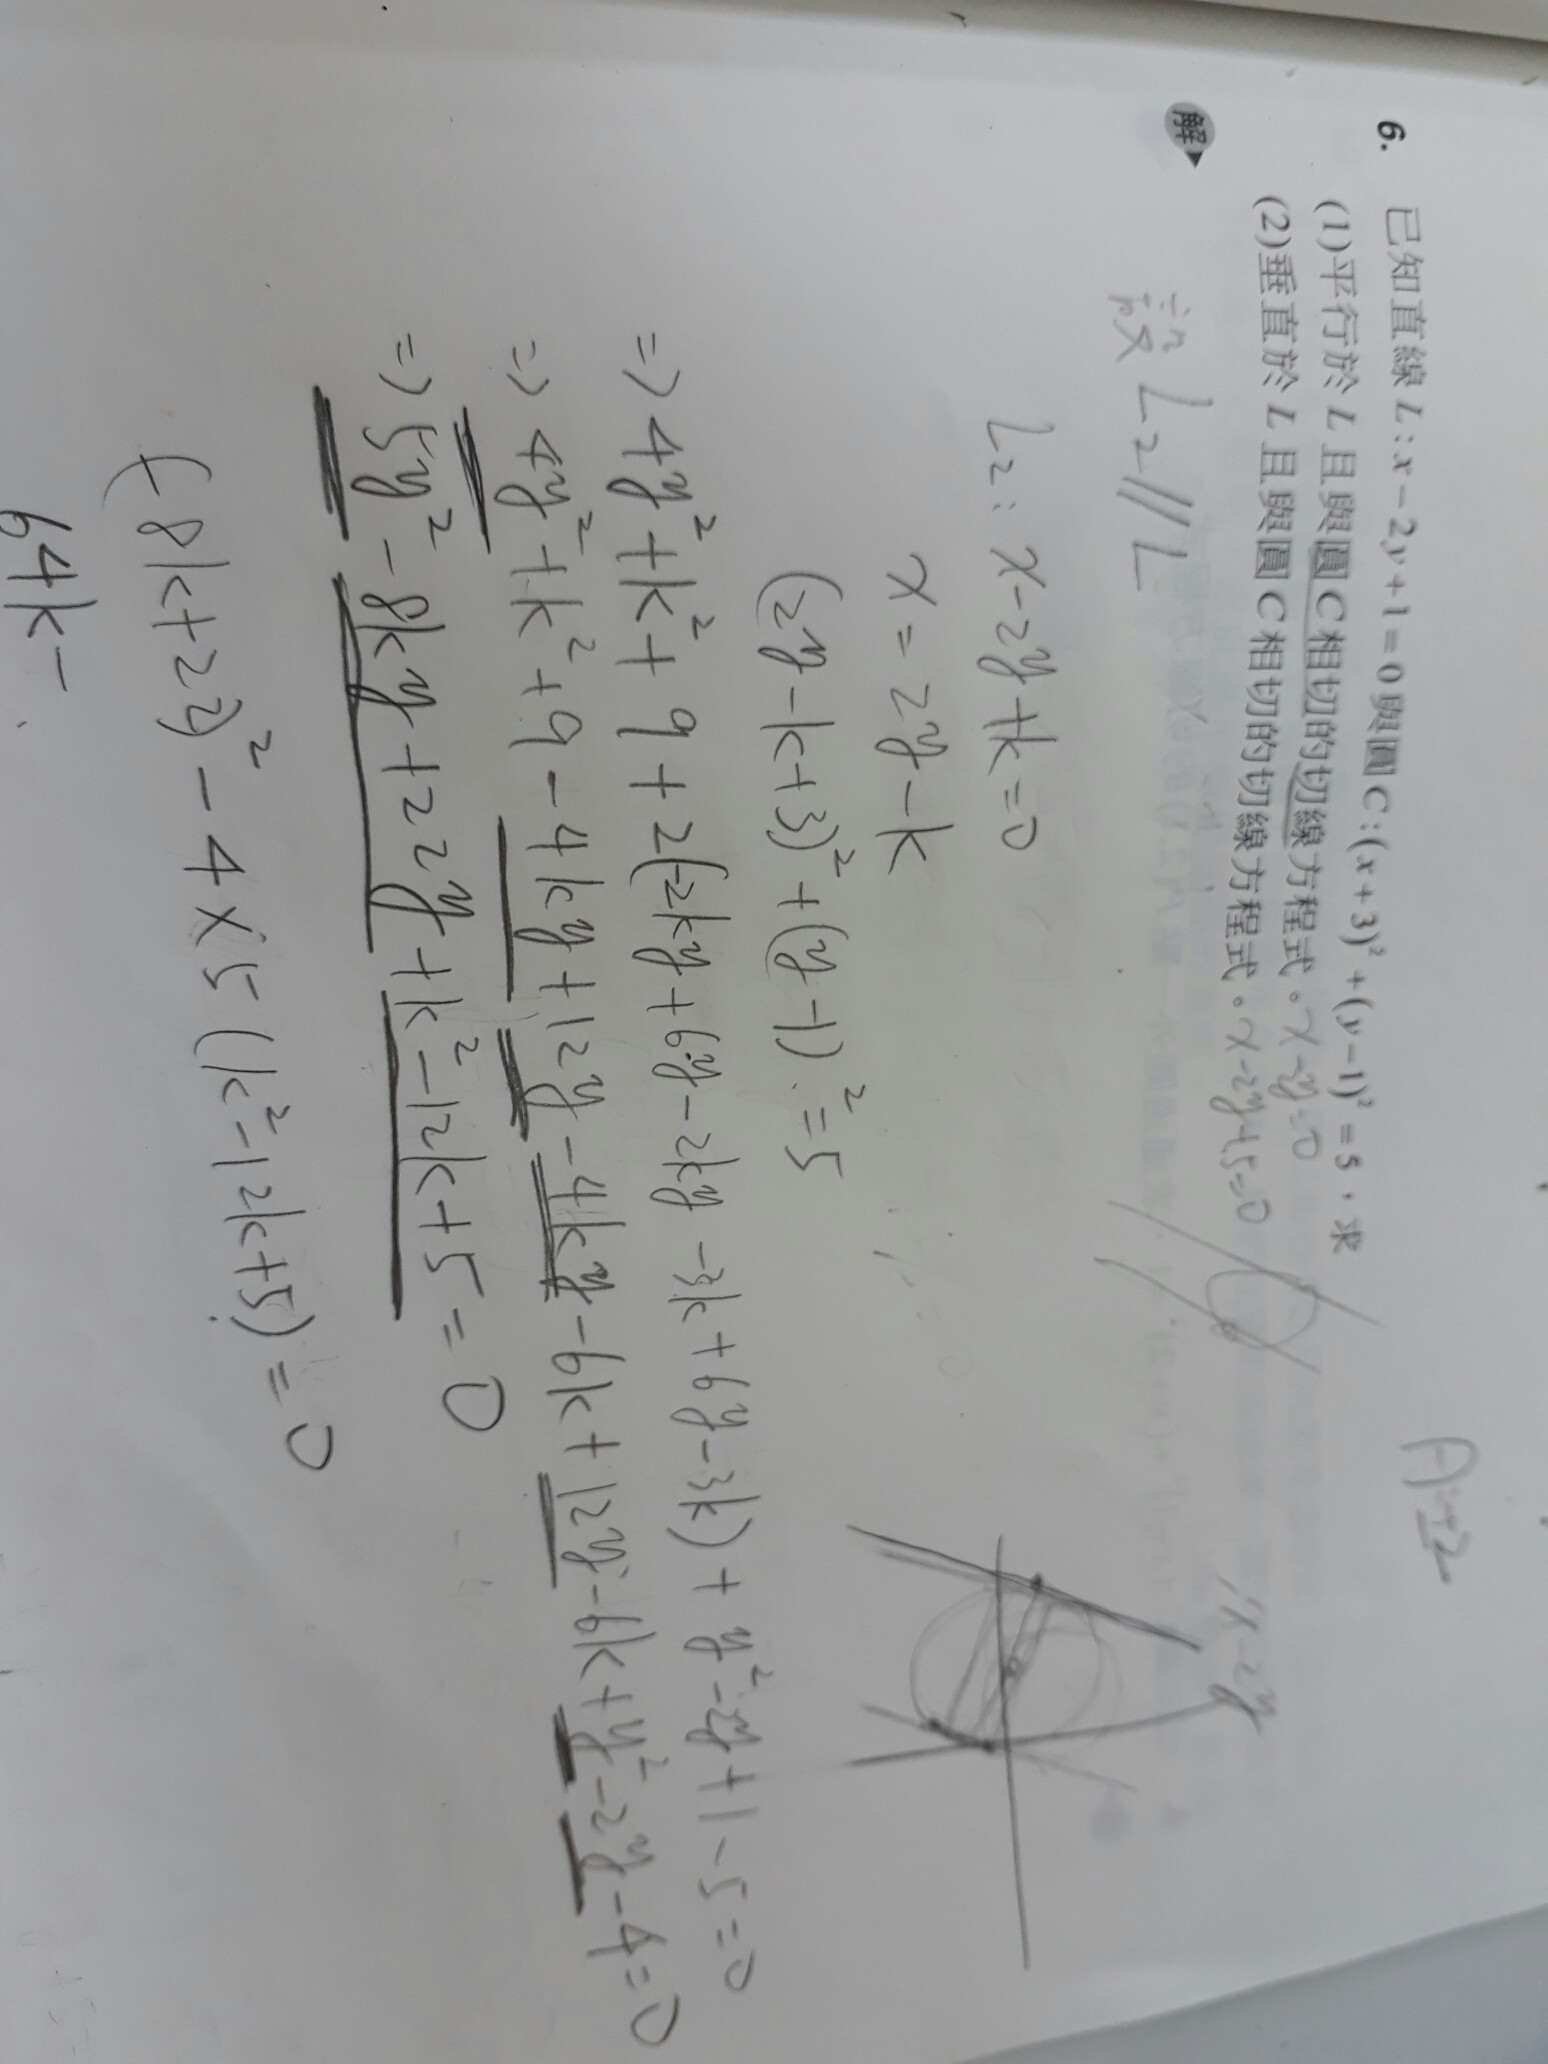 6. 已知直線 L：x－2y＋1＝0 與圓 C：(x＋3)²＋(y－1)²＝5，求
(1)平行於 L 且與圓 C 相切的切線方程式。
(2)垂直於 L 且與圓 C 相切的切線方程式。x-2y+5=0
解
設 L₂//L
L₂: x-2y+k=0
x=2y-k
(2y-k+3)²+(y-1)²=5
=> 4y²+k²+9+2(-2ky+6y-2ky-3k+6y-3k)+y²-2y+1-5=0
=> 4y²+k²+9-4ky+12y-4ky-6k+12y-6k+y²-2y-4=0
=> 5y²-8ky+22y+k²-12k+5=0
(-8k+22)²-4×5(k²-12k+5)=0
64k-